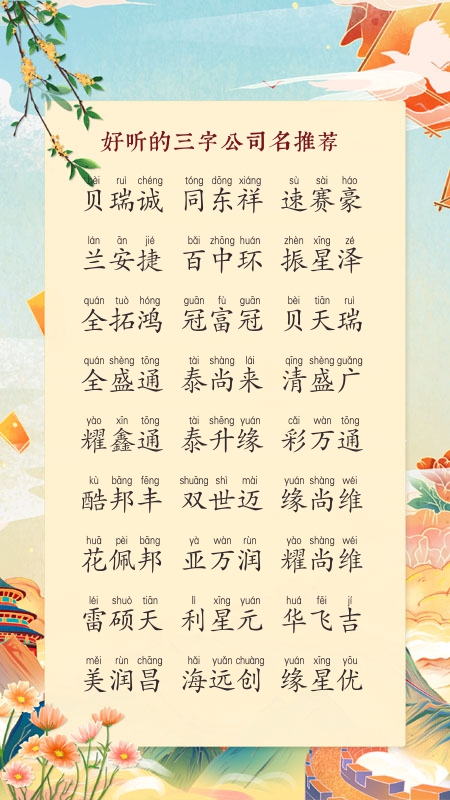 好听的三字公司名推荐
bèi ruì chéng tóng dōng xiáng sù sài háo
贝瑞诚 同东祥 速赛豪
lán ān jié bǎi zhōng huán zhèn xīng zé
兰安捷 百中环 振星泽
quán tuò hóng guān fù guān bèi tiān ruì
全拓鸿 冠富冠 贝天瑞
quán shèng tōng tài shàng lái qīng shèng guǎng
全盛通 泰尚来 清盛广
yào xīn tōng tài shēng yuán cǎi wàn tōng
耀鑫通 泰升缘 彩万通
kù bāng fēng shuāng shì mài yuán shàng wéi
酷邦丰 双世迈 缘尚维
huā pèi bāng yà wàn rùn yào shàng wéi
花佩邦 亚万润 耀尚维
léi shuò tiān lì xīng yuán huá fēi jí
雷硕天 利星元 华飞吉
měi rùn chāng hǎi yuǎn chuàng yuán xīng yōu
美润昌 海远创 缘星优